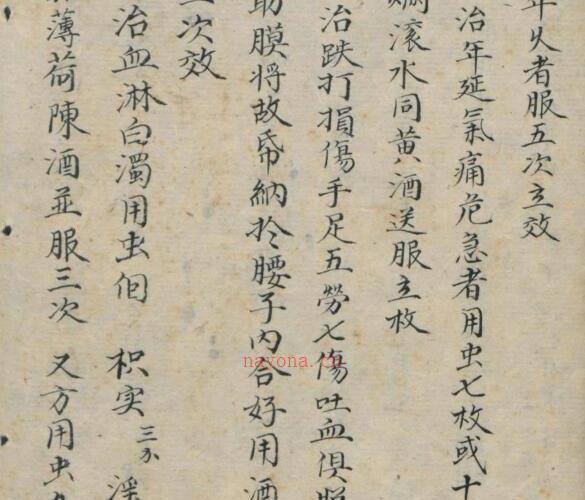 年久者服五次立效
治年延氣痛危急者用虫七枚或十
滚水同黄酒送服立枚
治跌打損傷手足五勞七傷吐血俱照
膜將故帋納於腰子内合好用酒
次效
治血淋白濁用虫個 枳实三分
薄荷陳酒並服三次 又方用虫
nayona.cn